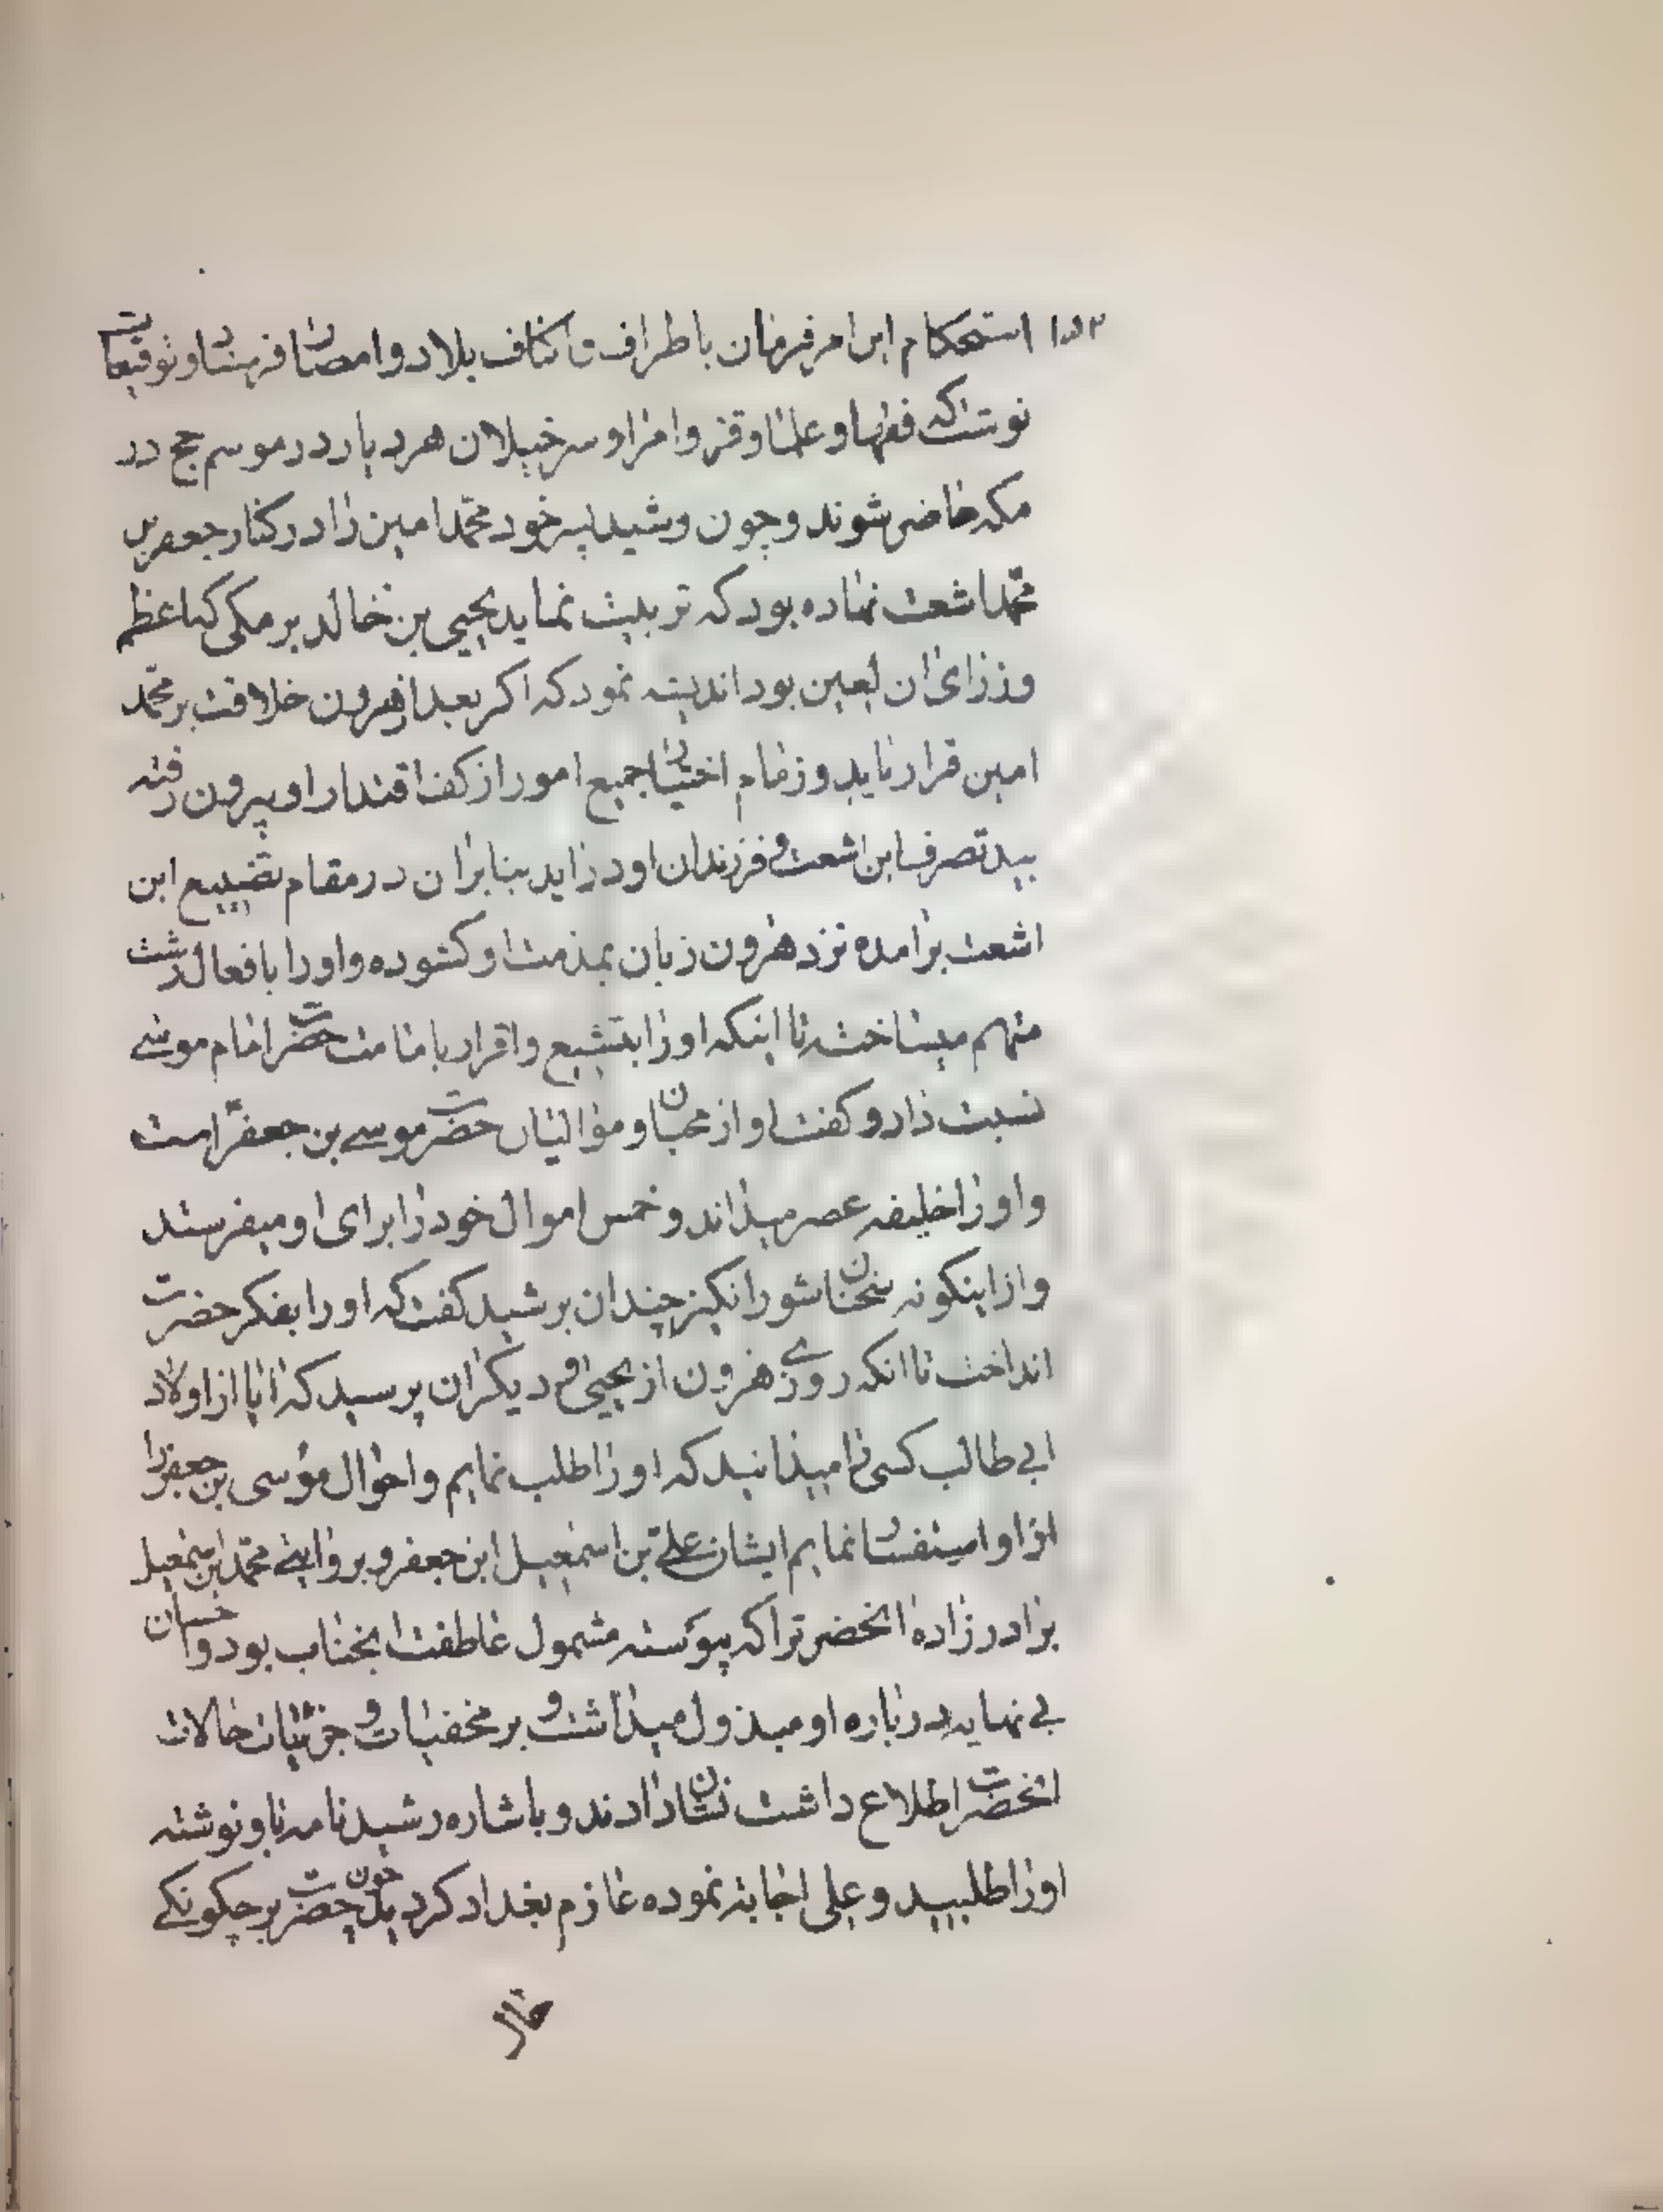 استحکام این امر فرمان باطراف و اکناف بلاد و امصار فرستاد و توقیعات
نوشت که فقها و علما و قراء و امرا و سرخیلان هر دیار در موسم حج در
مکه حاضر شوند و چون رشید پسر خود محمد امین را در کنار جعفر بن
محمد اشعث نهاده بود که تربیت نماید یحیی بن خالد برمکی که اعظم
وزرای ان لعین بود اندیشه نمود که اکر بعد از هرون خلافت بر محمد
امین قرار یابد و زمام اختیار جمیع امور از کف اقتدار او بیرون رفته
بید تصرف ابن اشعث و فرزندان او در اید بنابران در مقام تضییع ابن
اشعث برامده نزد هرون زبان بمذمت او کشوده و او را بافعال زشت
متهم میساخت تا اینکه او را بتشیع و اقرار بامامت حضرت امام موسی
نسبت داد و کفت او از محبان و موالیان حضرت موسی بن جعفر است
و او را خلیفه عصر میداند و خمس اموال خود را برای او میفرستد
و از اینکونه سخنان شورانکیز چندان برشید کفت که او را بفکر حضرت
انداخت تا انکه روزی هرون از یحیی و دیکران پرسید که ایا از اولاد
ابی طالب کسی را میدانید که او را طلب نمایم و احوال موسی بن جعفر را
از او استفسار نمایم ایشان علی بن اسمعیل ابن جعفر و بروایتی محمد ابن اسمعیل
برادر زاده انحضرترا که پیوسته مشمول عاطفت انجناب بود و احسان
بی نهایه در باره او مبذول میداشت و بر مخفیات و جزئیات حالات
انحضرت اطلاع داشت نشان دادند و باشاره رشید نامه باو نوشته
او را طلبید و علی اجابة نموده عازم بغداد کردید چون حضرت بر چکونکی
حال